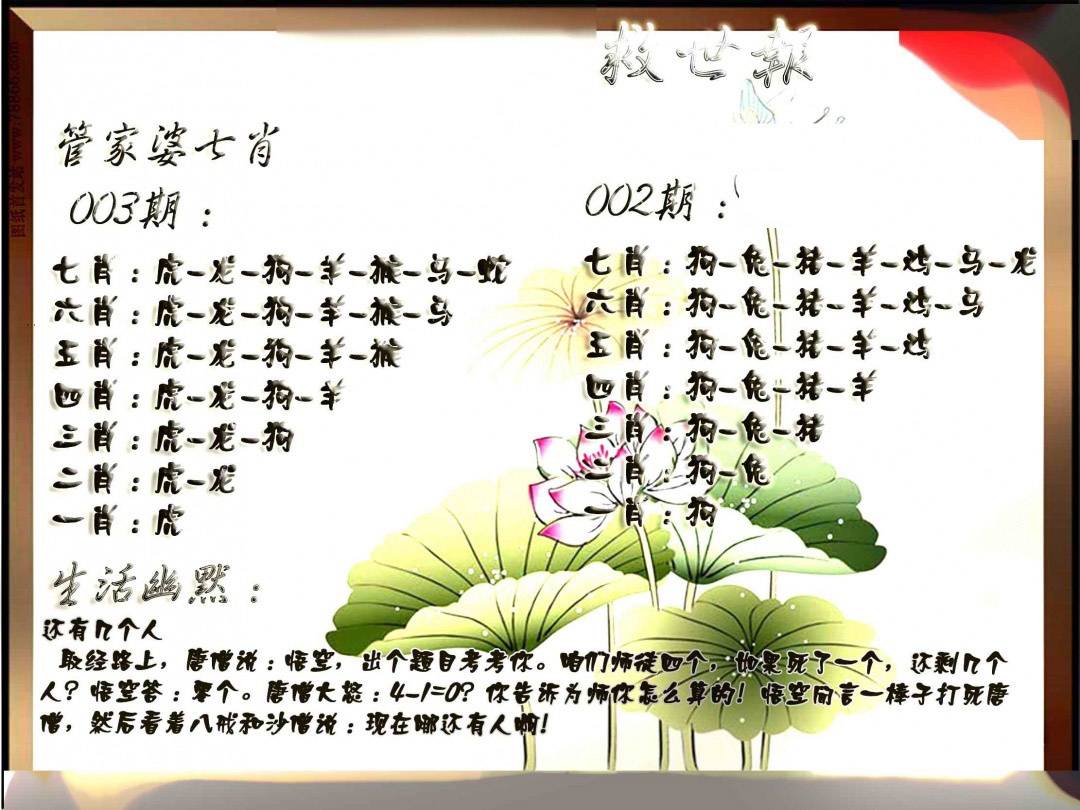 救世報
管家婆七肖
003期：
七肖：虎-龙-狗-羊-猴-马-蛇
六肖：虎-龙-狗-羊-猴-马
五肖：虎-龙-狗-羊-猴
四肖：虎-龙-狗-羊
三肖：虎-龙-狗
二肖：虎-龙
一肖：虎
002期：
七肖：狗-兔-猪-羊-鸡-马-龙
六肖：狗-兔-猪-羊-鸡-马
五肖：狗-兔-猪-羊-鸡
四肖：狗-兔-猪-羊
三肖：狗-兔-猪
二肖：狗-兔
一肖：狗
生活幽默：
还有几个人
取经路上，唐僧说：悟空，出个题目考考你。咱们师徒四个，如果死了一个，还剩几个
人？悟空答：零个。唐僧大怒：4-1=0？你告诉为师你怎么算的！悟空闻言一棒子打死唐
僧，然后看着八戒和沙僧说：现在哪还有人啊！